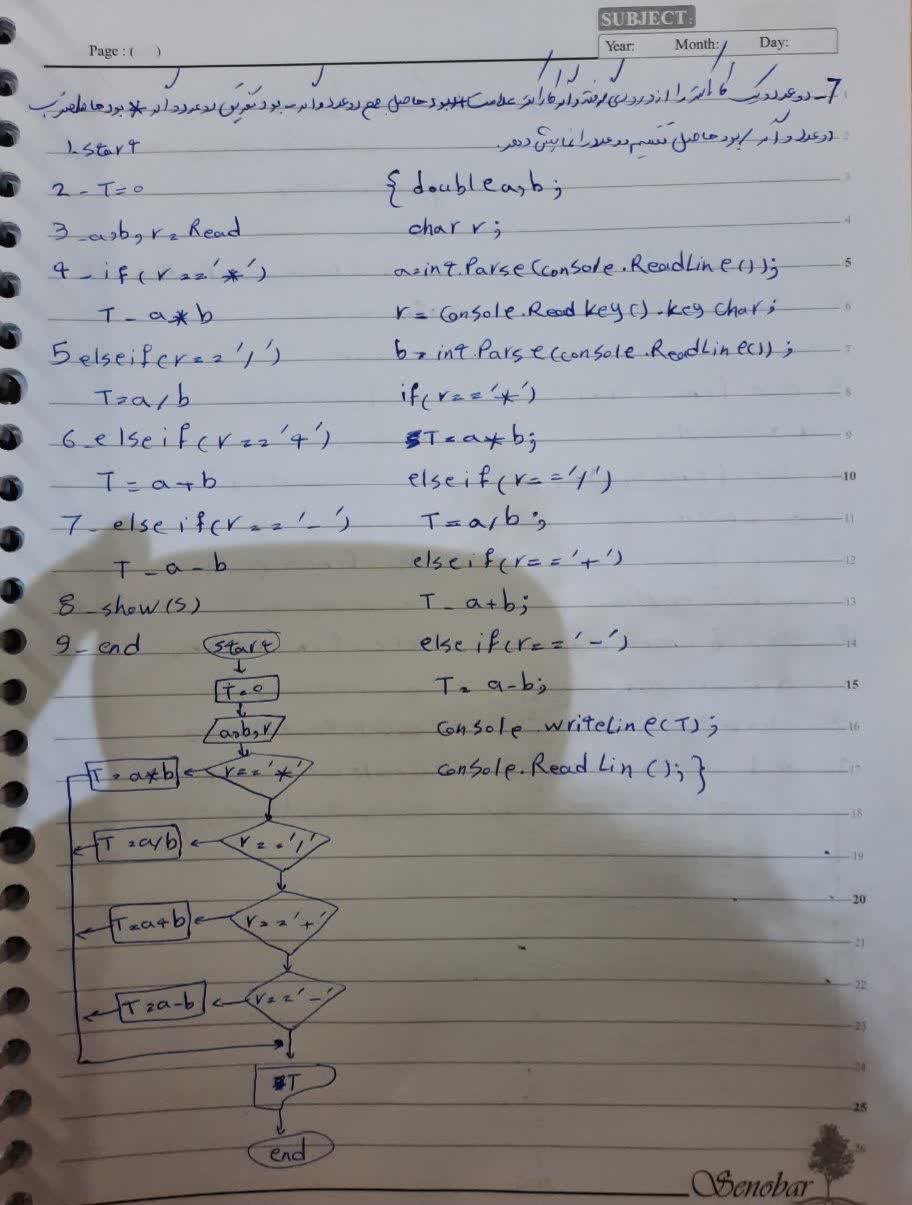 SUBJECT:
Page : ( )
Year: Month: Day:
7- دو عدد و یک کاراکتر را از ورودی گرفته و اگر کاراکتر علامت + بود حاصل جمع دو عدد و اگر - بود تفریق دو عدد و اگر * بود حاصلضرب
دو عدد و اگر / بود حاصل تقسیم دو عدد را نمایش دهد.
1. start
2 - T=0
3 - a,b,r = Read
4 - if(r=='*')
T = a*b
5 else if(r=='/')
T=a/b
6 - else if(r=='+')
T = a+b
7 - else if(r=='-')
T = a-b
8 - show(S)
9 - end
{ double a,b;
char r;
a=int.Parse(console.ReadLine());
r = console.Readkey().keychar;
b = int.Parse(console.ReadLine());
if(r=='*')
T=a*b;
else if(r=='/')
T=a/b;
else if(r=='+')
T = a+b;
else if(r=='-')
T = a-b;
Console.writeLine(T);
console.ReadLin();}
start
T=0
a,b,r
r=='*'
T = a*b
r=='/'
T=a/b
r=='+'
T=a+b
r=='-'
T=a-b
T
end
3
4
5
6
7
8
9
10
11
12
13
14
15
16
17
18
19
20
21
22
23
24
25
26
Senobar